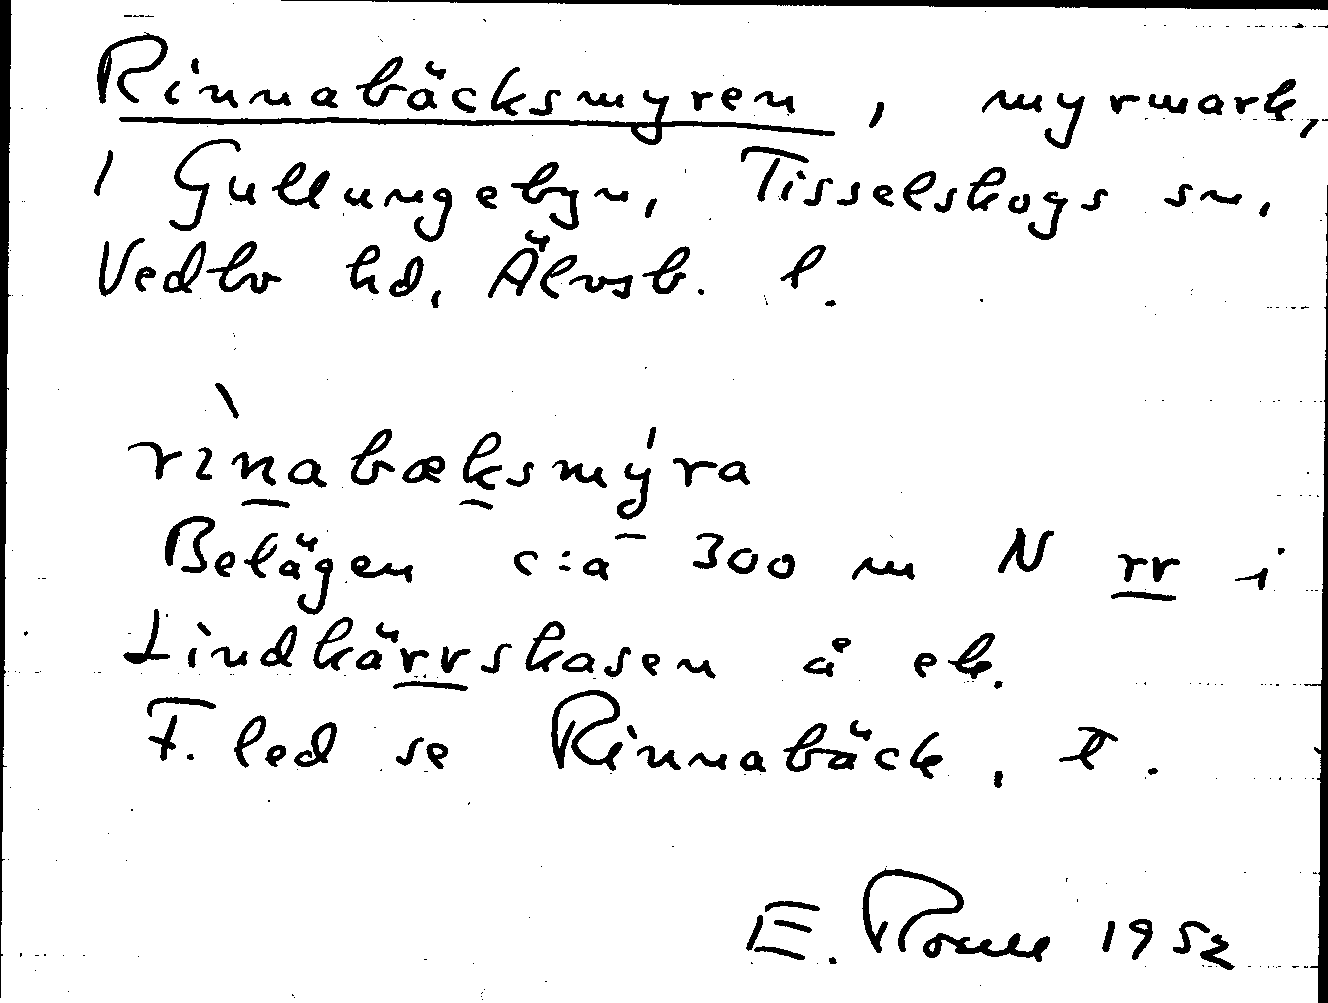 Rinnabäcksmyren, myrmark,
i Gullungebyn, Tisselskogs sn,
Vedbo hd, Älvsb. l.
rìnabæksmýra
Belägen c:a 300 m N rr i
Lindkärrskasen å ek.
F. led se Rinnabäck, t.
E. 1952